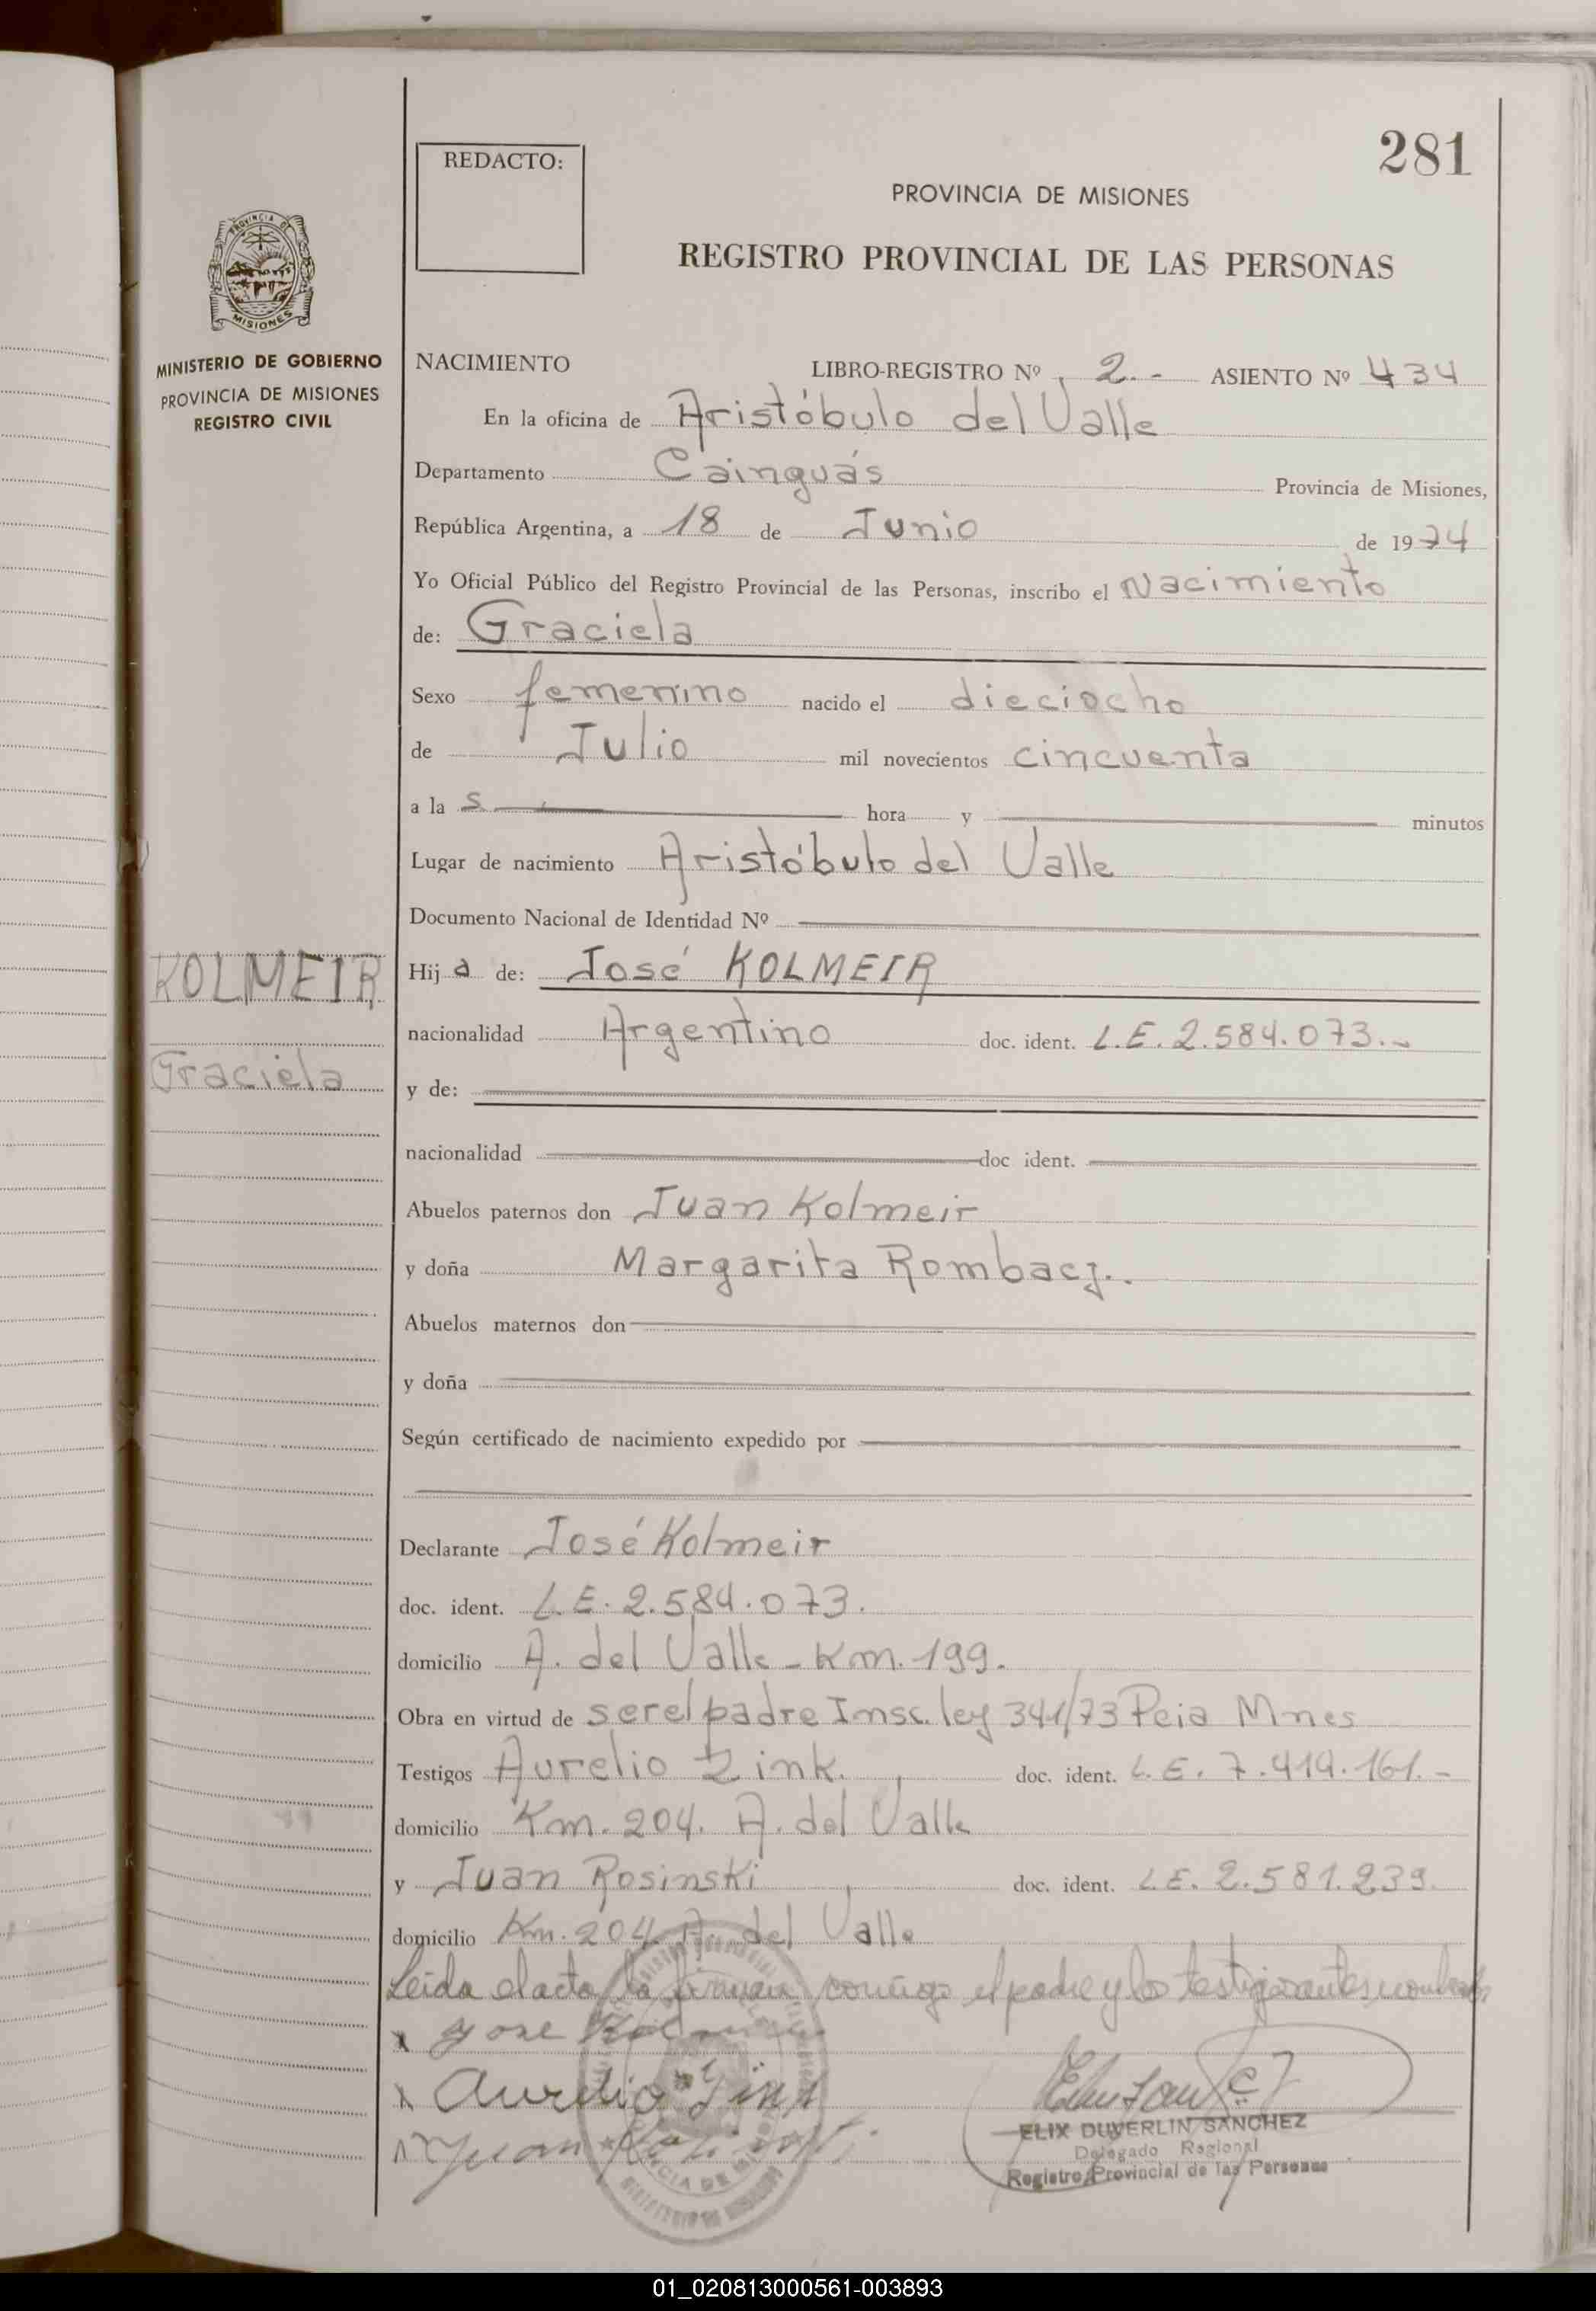 281
REDACTO:
PROVINCIA DE MISIONES
REGISTRO PROVINCIAL DE LAS PERSONAS
PROVINCIA DE
MISIONES
MINISTERIO DE GOBIERNO
PROVINCIA DE MISIONES
REGISTRO CIVIL
NACIMIENTO LIBRO-REGISTRO Nº 2.- ASIENTO Nº 434
En la oficina de Aristóbulo del Valle
Departamento Cainguás Provincia de Misiones,
República Argentina, a 18 de Junio de 1974
Yo Oficial Público del Registro Provincial de las Personas, inscribo el Nacimiento
de: Graciela
Sexo femenino nacido el dieciocho
de Julio mil novecientos cincuenta
a la s hora y minutos
Lugar de nacimiento Aristóbulo del Valle
Documento Nacional de Identidad Nº
KOLMEIR
Hij a de: José KOLMEIR
nacionalidad Argentino doc. ident. L.E. 2.584.073.-
Graciela
y de:
nacionalidad doc ident.
Abuelos paternos don Juan Kolmeir
y doña Margarita Rombacj..
Abuelos maternos don
y doña
Según certificado de nacimiento expedido por
Declarante José Kolmeir
doc. ident. L.E. 2.584.073.
domicilio A. del Valle - Km. 199.
Obra en virtud de ser el padre Insc. ley 341/73 Pcia Mnes
Testigos Aurelio Zink. doc. ident. L.E. 7.414.161.-
domicilio Km. 204. A. del Valle
y Juan Rosinski doc. ident. L.E. 2.581.239.
domicilio Km. 204 A. del Valle
Leida el acta la firman conmigo el padre y los testigos antes nombrados
x Jose
x Aurelio Zink
x Juan
ELIX DUVERLIN SANCHEZ
Delegado Regional
Registro Provincial de las Personas
01_020813000561-003893